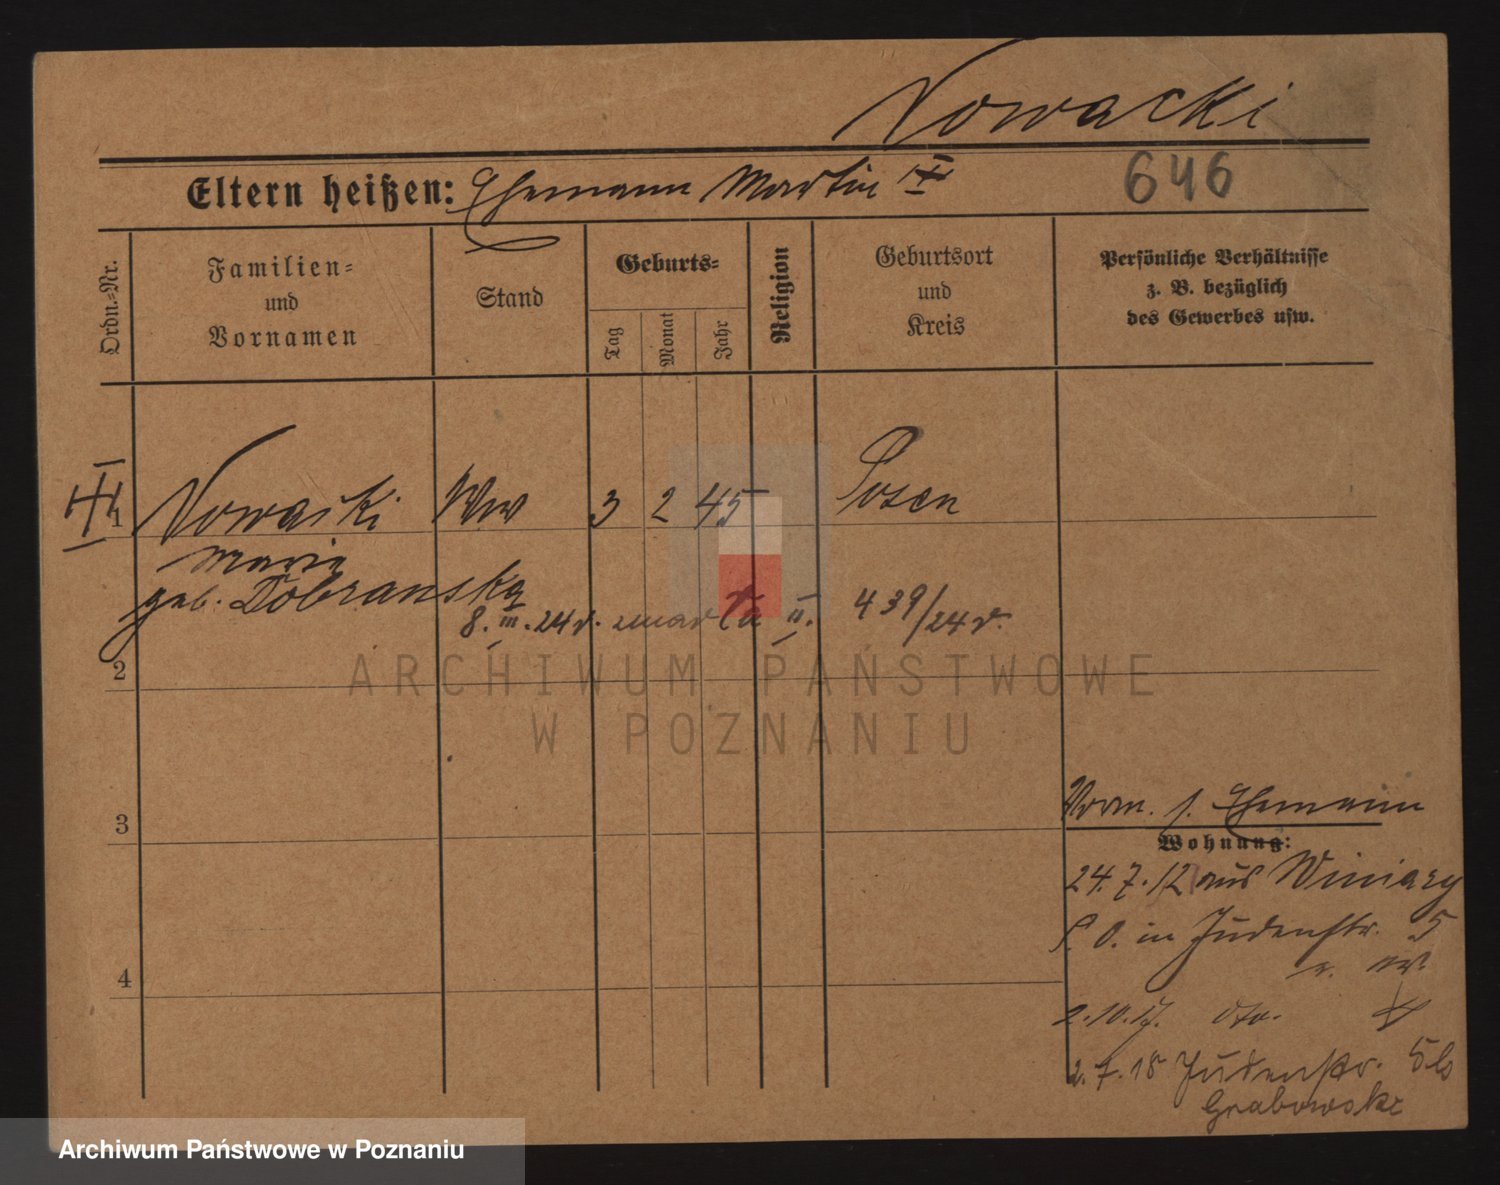 Nowacki
Eltern heißen: Ehemann Martin
646
Ordn.-Nr.
Familien-
und
Vornamen
Stand
Geburts-
Tag
Monat
Jahr
Religion
Geburtsort
und
Kreis
Persönliche Verhältnisse
z. B. bezüglich
des Gewerbes usw.
1
Nowacki Ww 3 2 45 Posen
Maria
geb. Dobranska
8. III. 24 r. umarła 439/24 r.
2
3
4
Vorm. s. Ehemann
Wohnung:
24.7.12 aus Winiary
P. O. in Judenstr. 5
2.10.17. dto.
2.7.18 Judenstr. 5 b
Grabowski
ARCHIWUM PAŃSTWOWE
W POZNANIU
Archiwum Państwowe w Poznaniu